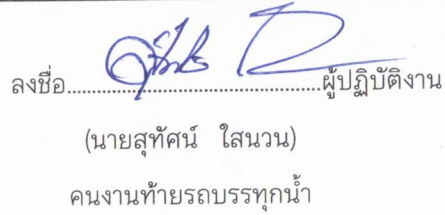 ลงชื่อ......................................................ผู้ปฏิบัติงาน
(นายสุทัศน์ ใสนวน)
คนงานท้ายรถบรรทุกน้ำ